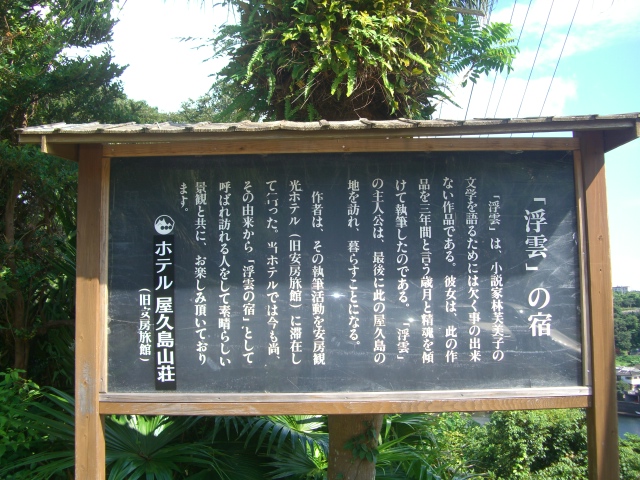 「浮雲」の宿
「浮雲」は、小説家林芙美子の
文学を語るためには欠く事の出来
ない作品である。彼女は、此の作
品を三年間と言う歳月と精魂を傾
けて執筆したのである。「浮雲」
の主人公は、最後に此の屋久島の
地を訪れ、暮らすことになる。
作者は、その執筆活動を安房観
光ホテル（旧安房旅館）に滞在し
て行った。当ホテルでは今も尚、
その由来から「浮雲の宿」として
呼ばれ訪れる人をして素晴らしい
景観と共に、お楽しみ頂いており
ます。
ホテル屋久島山荘
（旧安房旅館）